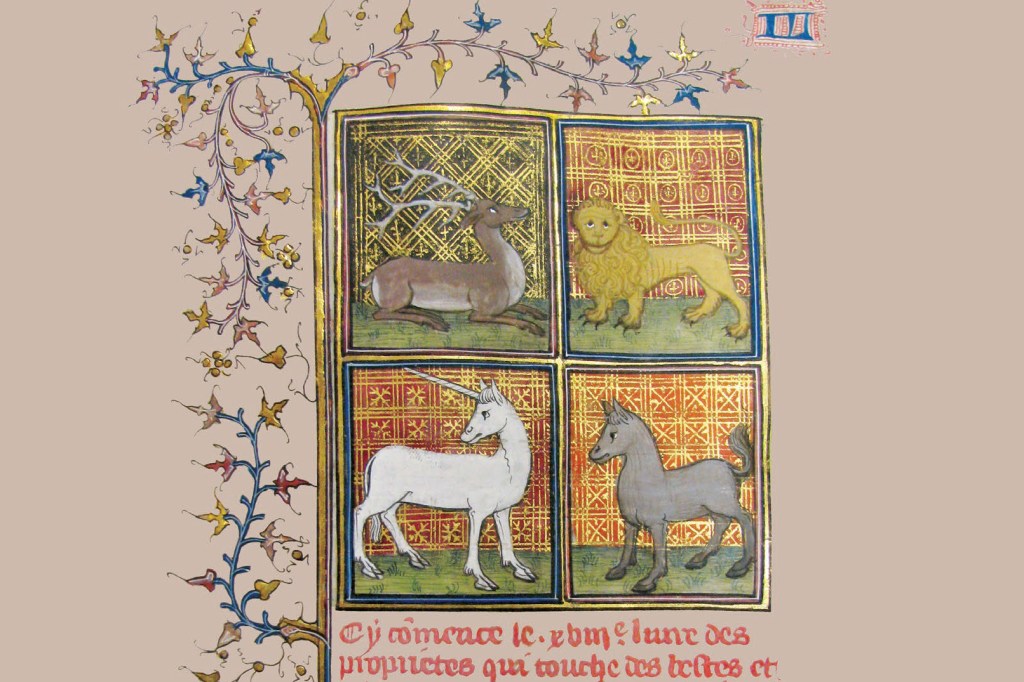 Cy cōmence le .xviiiᵉ liure des
proprietes qui touche des bestes et